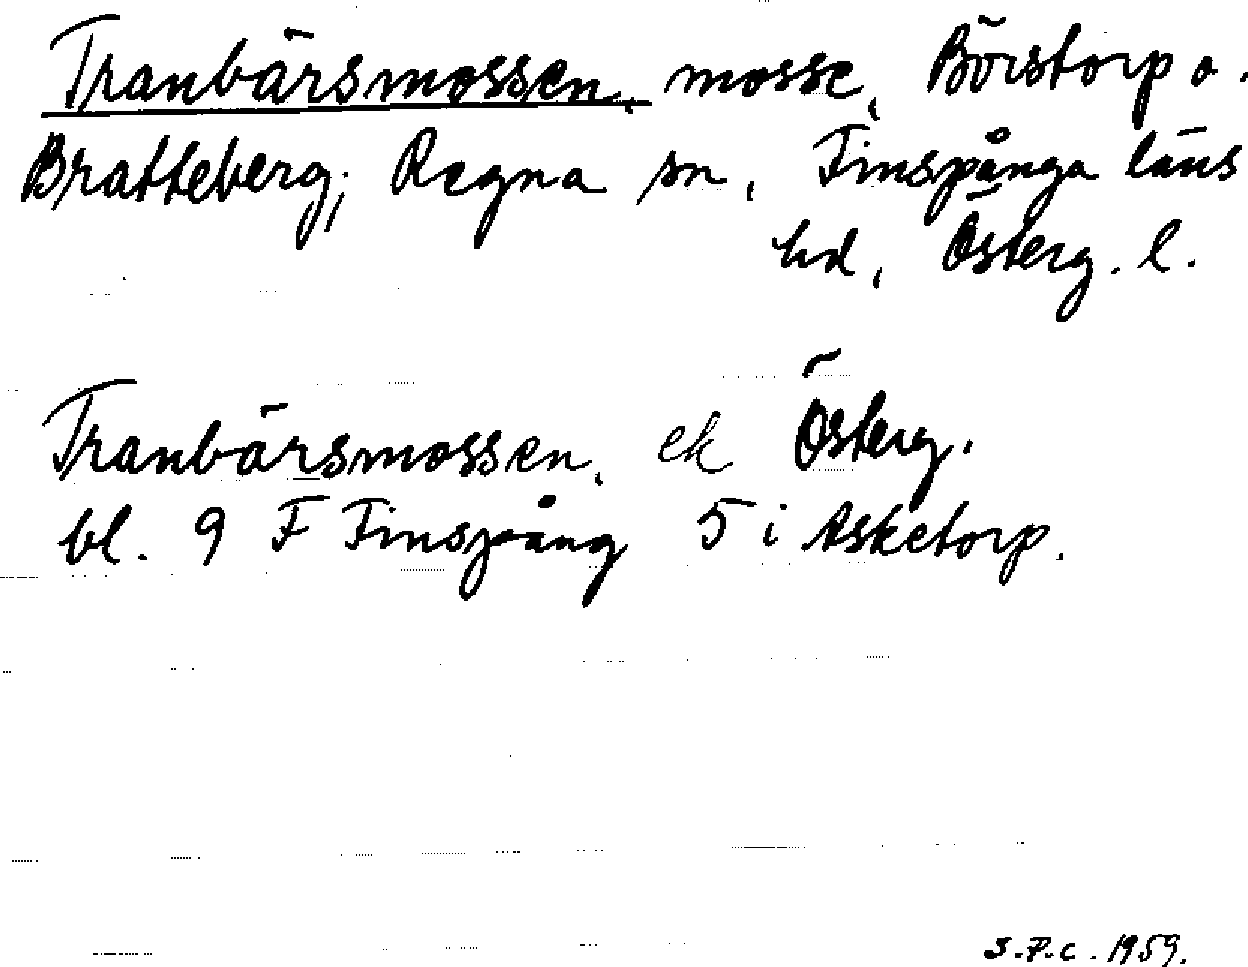 Tranbärsmossen, mosse, Börstorp o.
Bratteberg, Regna sn, Finspånga läns
hd, Österg. l.
Tranbärsmossen, ek Österg.
bl. 9 F Finspång 5 i Asketorp.
S.F.C. 1959.